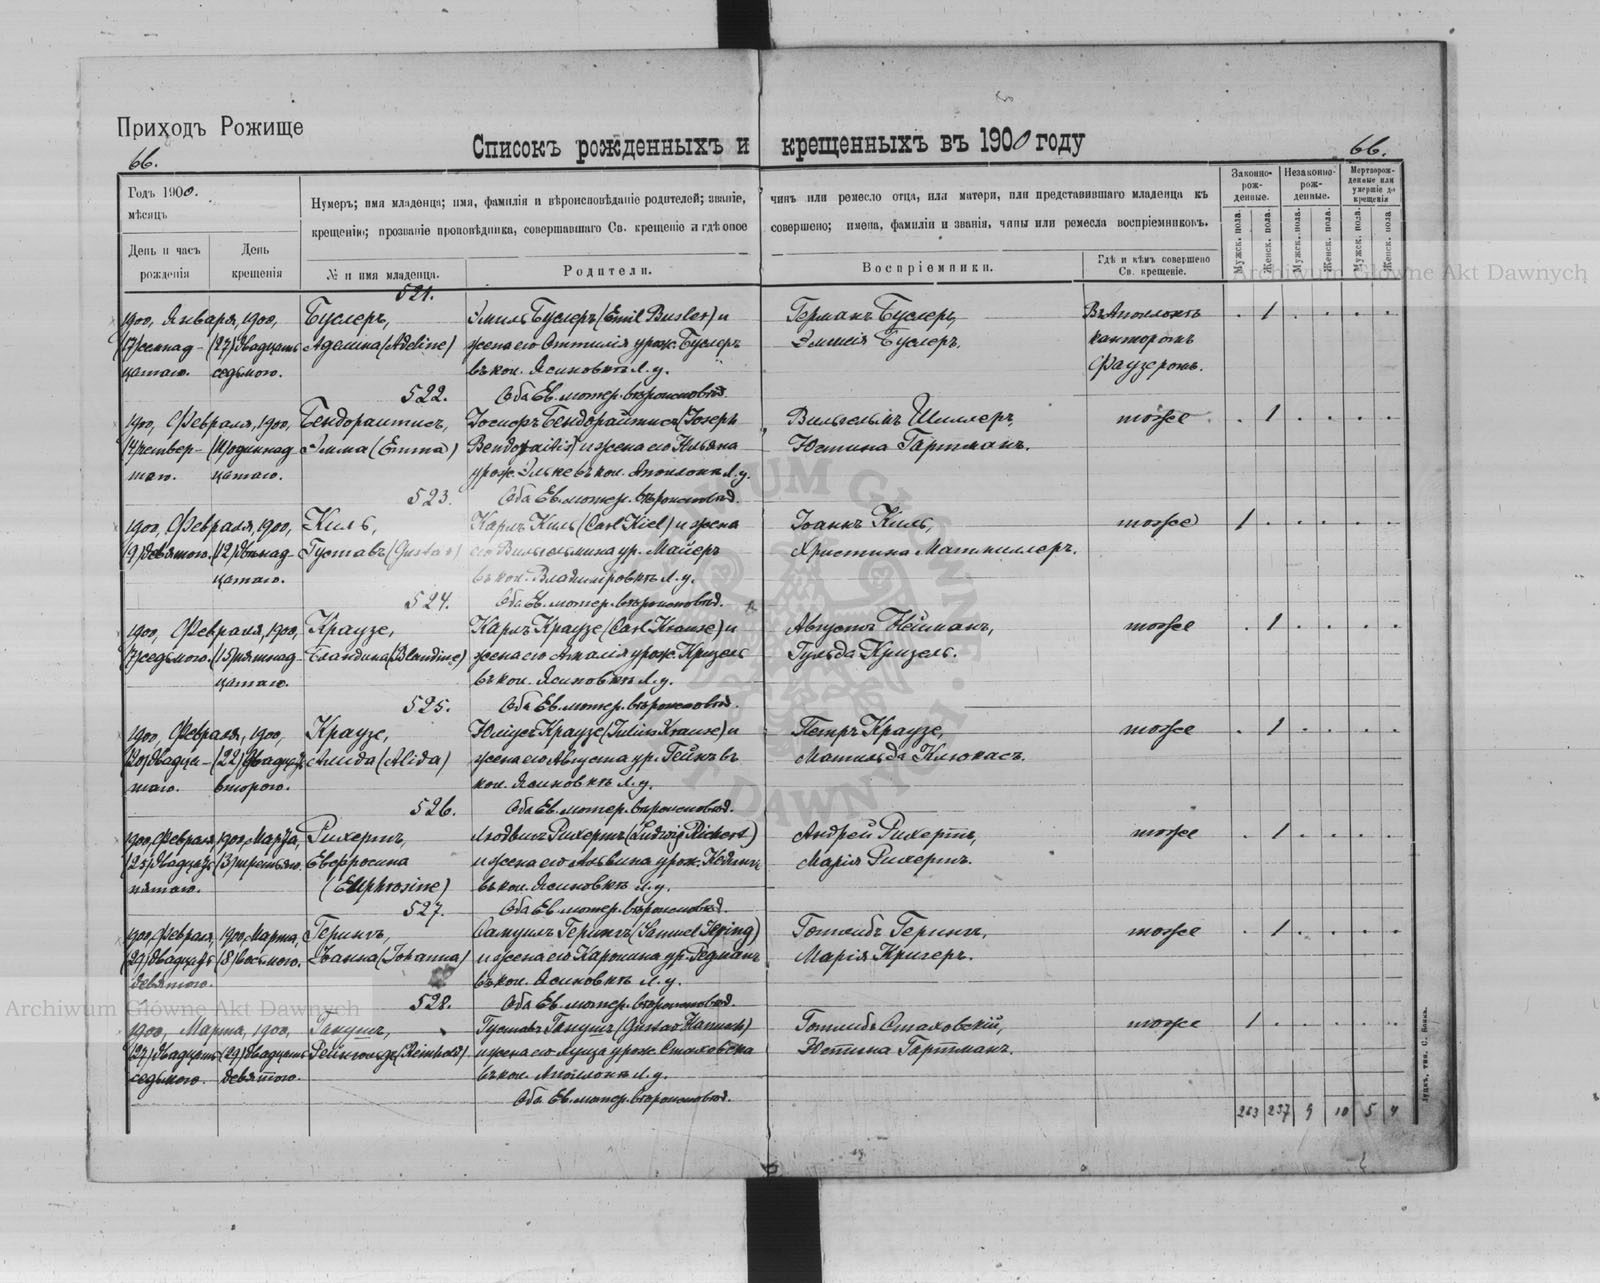 Приходъ Рожище
66.
Списокъ рожденныхъ и крещенныхъ въ 1900 году
66.
Годъ 1900.
мѣсяцъ
День и часъ
рожденія
День
крещенія
Нумеръ; имя младенца; имя, фамилія и вѣроисповѣданіе родителей; званіе, чинъ или ремесло отца, или матери, или представившаго младенца къ
крещенію; прозваніе проповѣдника, совершавшаго Св. крещеніе и гдѣ оное совершено; имена, фамиліи и званія, чины или ремесла воспріемниковъ.
№ и имя младенца.
Родители.
Воспріемники.
Гдѣ и кѣмъ совершено
Св. крещеніе.
Законно-
рож-
денные.
Незаконно-
рож-
денные.
Мертворож-
денные или
умершіе до
крещенія
Мужск. пола.
Женск. пола.
Мужск. пола.
Женск. пола.
Мужск. пола.
Женск. пола.
521.
1900, Января, 1900, Буслеръ, Эмиль Буслеръ (Emil Busler) и Германъ Буслеръ, Въ Аполонкѣ . 1 . . . .
(17) семнад- (27) двадцать Аделина (Adeline) жена его Оттилія урож. Буслеръ Эмилія Буслеръ. канторомъ
цатаго. седьмого. въ кол. Ясиновкѣ Л. у. Фаузеромъ.
522. Оба Ев. лютер. вѣроисповѣд.
1900, Февраля, 1900, Бендорайтисъ, Іосифъ Бендорайтисъ (Joseph Вильгельмъ Шиллеръ, тоже . 1 . . . .
(4) четвер- (11) одиннад- Эмма (Emma) Bendoraitis) и жена его Юльяна Юстина Гартманъ.
таго. цатаго. урож. Эльке въ кол. Аполонкѣ Л. у.
523. Оба Ев. лютер. вѣроисповѣд.
1900, Февраля, 1900, Киль, Карлъ Киль (Carl Kiel) и жена Іоаннъ Киль, тоже 1 . . . . .
(9) девятого. (12) двѣнад- Густавъ (Gustav) его Вильгельмина ур. Майеръ Христина Матмиллеръ.
цатаго. въ кол. Владимировкѣ Л. у.
524. Оба Ев. лютер. вѣроисповѣд.
1900, Февраля, 1900, Краузе, Карлъ Краузе (Carl Krause) и Августъ Нейманъ, тоже . 1 . . . .
(7) седьмого. (15) пятнад- Бландина (Blandine) жена его Амалія урож. Кризель Гульда Кризель.
цатаго. въ кол. Ясиновкѣ Л. у.
525. Оба Ев. лютер. вѣроисповѣд.
1900, Февраля, 1900, Краузе, Юліусъ Краузе (Julius Krause) и Петръ Краузе, тоже . 1 . . . .
(20) двадца- (22) двадцать Алида (Alida) жена его Августа ур. Гейнъ въ Матильда Клюкасъ.
таго. второго. кол. Ясиновкѣ Л. у.
526. Оба Ев. лютер. вѣроисповѣд.
1900, Февраля, 1900, Марта, Рихертъ, Людвигъ Рихертъ (Ludwig Richert) Андрей Рихертъ, тоже . 1 . . . .
(25) двадцать (3) третьяго. Евфросина и жена его Альвина урож. Марія Рихертъ.
пятаго. (Euphrosine) въ кол. Ясиновкѣ Л. у.
527. Оба Ев. лютер. вѣроисповѣд.
1900, Февраля, 1900, Марта, Герингъ, Самуилъ Герингъ (Samuel Hering) Готлибъ Герингъ, тоже . 1 . . . .
(29) двадцать (8) восьмого. Іоанна (Johanna) и жена его Каролина ур. Редманъ Марія Кригеръ.
девятого. въ кол. Ясиновкѣ Л. у.
528. Оба Ев. лютер. вѣроисповѣд.
1900, Марта, 1900, Ганушъ, Густавъ Ганушъ (Gustav Hanusch) Готлибъ Стаховскій, тоже 1 . . . . .
(27) двадцать (29) двадцать Рейнгольдъ (Reinhold) и жена его Луиза урож. Стаховска Юстина Гартманъ.
седьмого. девятого. въ кол. Аполонкѣ Л. у.
Оба Ев. лютер. вѣроисповѣд.
263 237 9 10 5 4
Луцкъ, тип. С. Бонкъ.
Archiwum Główne Akt Dawnych
Archiwum Główne Akt Dawnych
ARCHIWUM GŁÓWNE AKT DAWNYCH